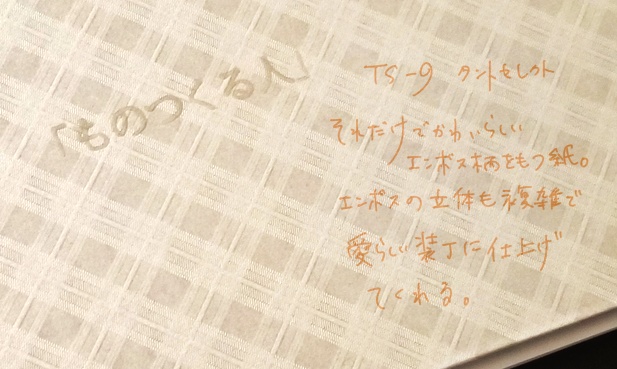 「ものつくる人」
TS-9 タントセレクト
それだけでかわいらしい
エンボス柄をもつ紙。
エンボスの立体も複雑で
愛らしい装丁に仕上げ
てくれる。